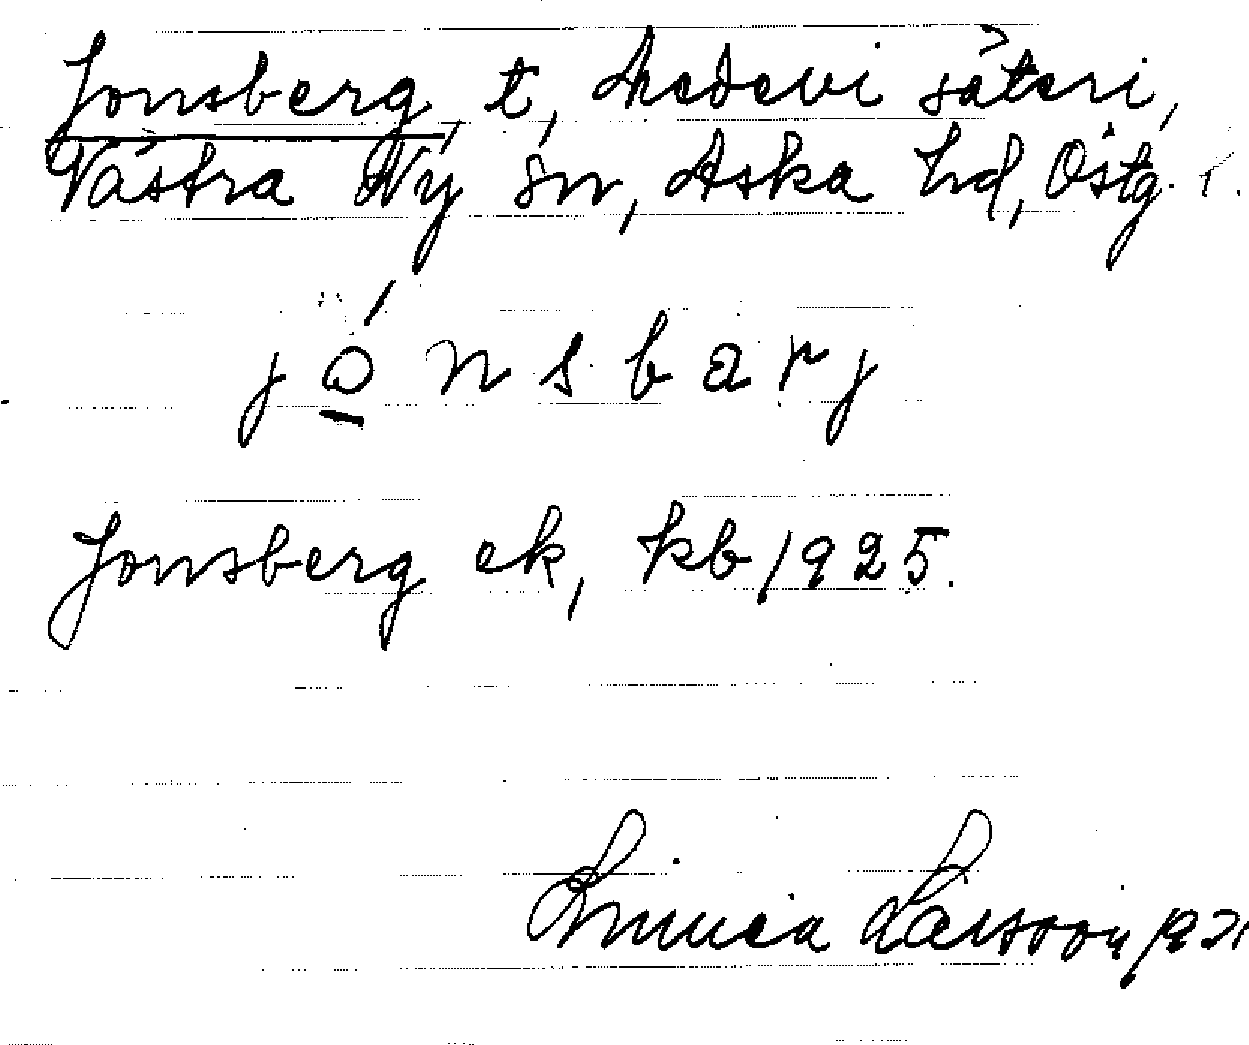 Jonsberg, t, Medevi säteri,
Västra Ny sn, Aska hd, Östg.
jó̲nsbarj
Jonsberg ek, kb 1925.
Linnea Larsson